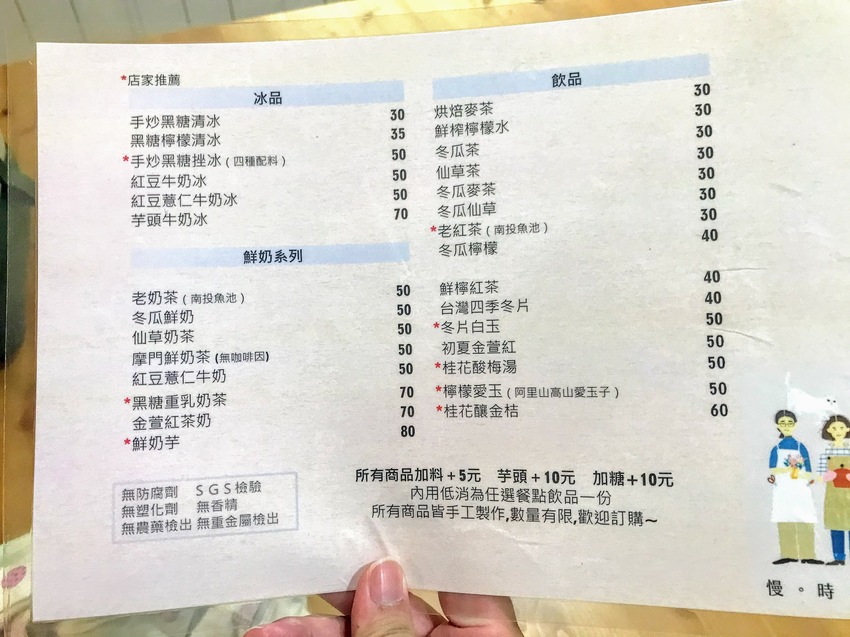 *店家推薦
冰品
手炒黑糖清冰 30
黑糖檸檬清冰 35
*手炒黑糖挫冰（四種配料） 50
紅豆牛奶冰 50
紅豆薏仁牛奶冰 50
芋頭牛奶冰 70
鮮奶系列
老奶茶（南投魚池） 50
冬瓜鮮奶 50
仙草奶茶 50
摩門鮮奶茶 (無咖啡因) 50
紅豆薏仁牛奶 50
*黑糖重乳奶茶 70
金萱紅茶奶 70
*鮮奶芋 80
飲品
烘焙麥茶 30
鮮榨檸檬水 30
冬瓜茶 30
仙草茶 30
冬瓜麥茶 30
冬瓜仙草 30
*老紅茶（南投魚池） 30
冬瓜檸檬 40
鮮檸紅茶 40
台灣四季冬片 40
*冬片白玉 50
初夏金萱紅 50
*桂花酸梅湯 50
*檸檬愛玉（阿里山高山愛玉子） 50
*桂花釀金桔 60
無防腐劑 SGS檢驗
無塑化劑 無香精
無農藥檢出 無重金屬檢出
所有商品加料+5元 芋頭+10元 加糖+10元
內用低消為任選餐點飲品一份
所有商品皆手工製作,數量有限,歡迎訂購~
慢。時